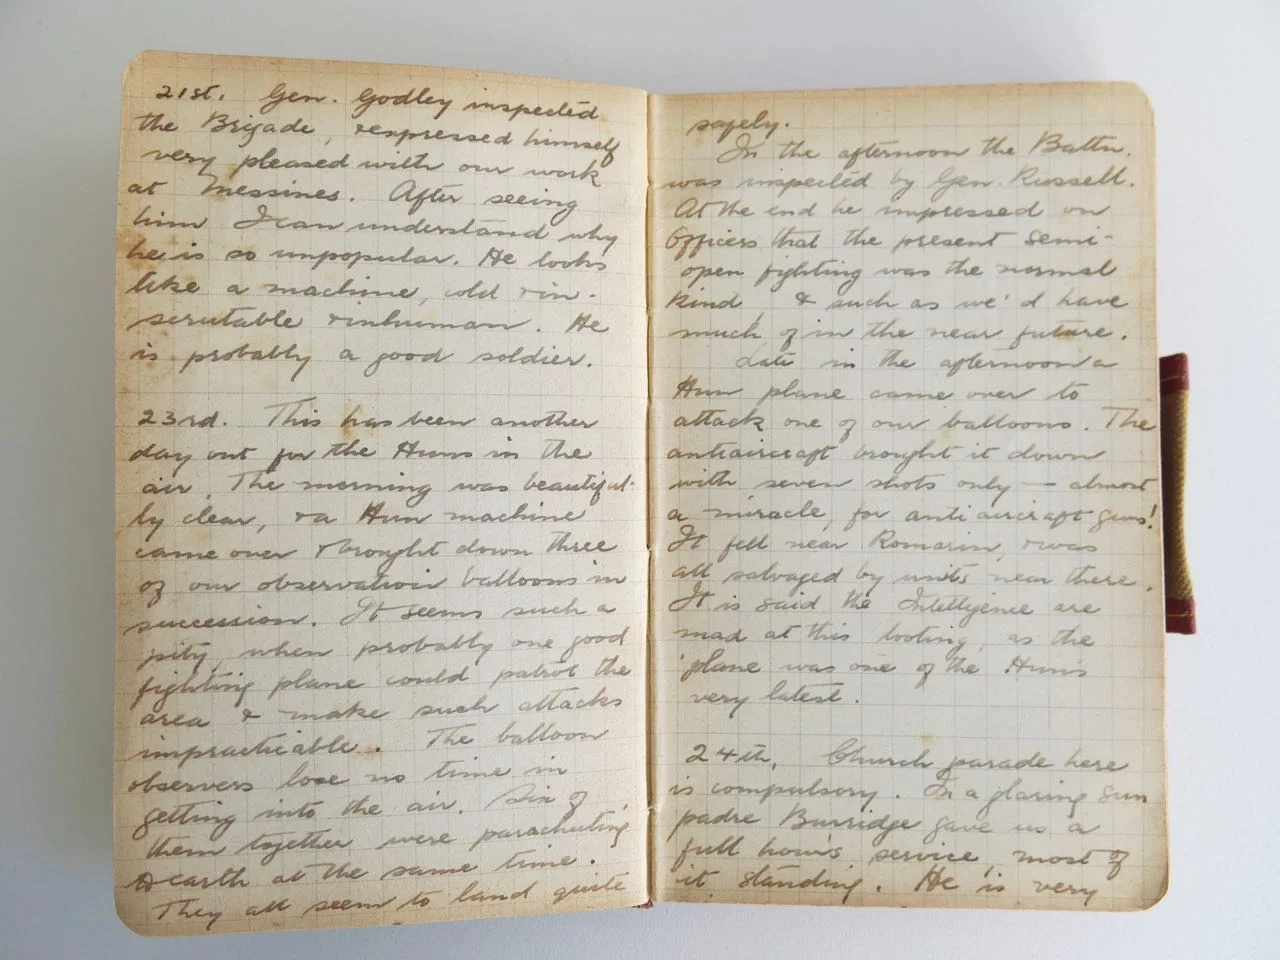 21st. Gen. Godley inspected
the Brigade, & expressed himself
very pleased with our work
at Messines. After seeing
him I can understand why
he is so unpopular. He looks
like a machine, cold & in-
scrutable & inhuman. He
is probably a good soldier.
23rd. This has been another
day out for the Huns in the
air. The morning was beautiful-
ly clear, & a Hun machine
came over & brought down three
of our observation balloons in
succession. It seems such a
pity, when probably one good
fighting plane could patrol the
area & make such attacks
impracticable. The balloon
observers lose no time in
getting into the air. Six of
them together were parachuting
to earth at the same time.
They all seem to land quite
safely.
In the afternoon the Battn.
was inspected by Gen. Russell.
At the end he impressed on
Officers that the present semi-
open fighting was the normal
kind, & such as we'd have
much of in the near future.
Late in the afternoon a
Hun plane came over to
attack one of our balloons. The
antiaircraft brought it down
with seven shots only — almost
a miracle, for anti aircraft guns!
It fell near Romarin, & was
all salvaged by units near there.
It is said the Intelligence are
mad at this looting, as the
plane was one of the Huns
very latest.
24th. Church parade here
is compulsory. In a glaring sun
padre Burridge gave us a
full hours service, most of
it standing. He is very